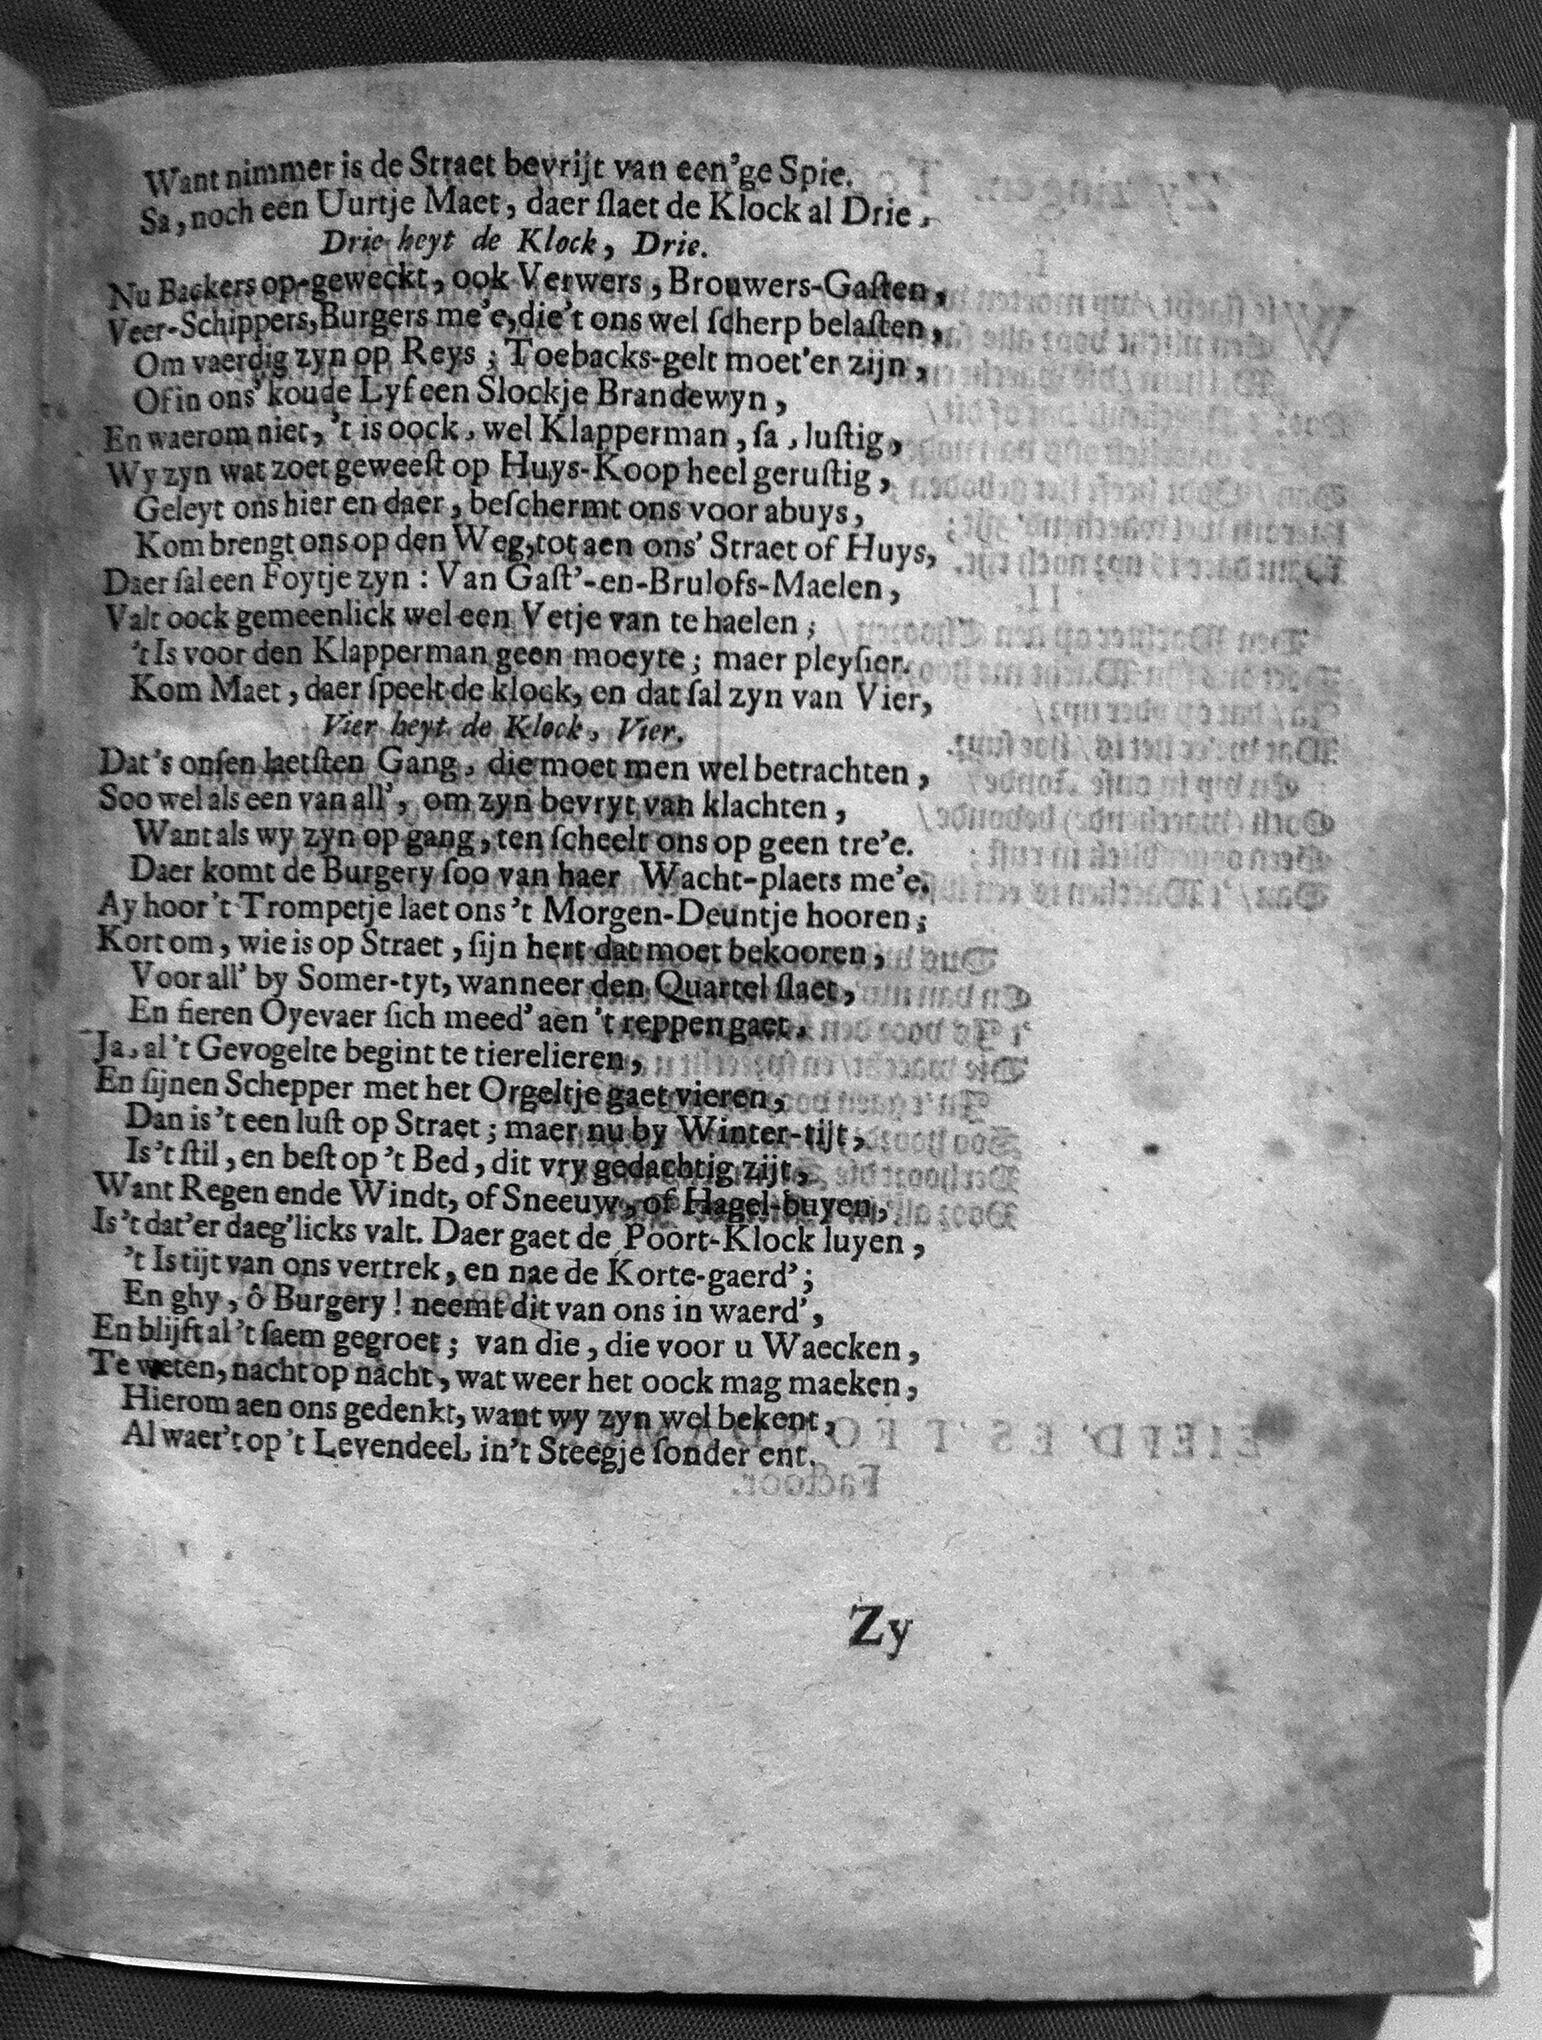 Want nimmer is de Straet bevrijt van een'ge Spie.
Sa, noch een Uurtje Maet, daer ſlaet de Klock al Drie,
Drie heyt de Klock, Drie.
Nu Backers op-geweckt, ook Verwers, Brouwers-Gaſten,
Veer-Schippers, Burgers me'e, die't ons wel ſcherp belaſten,
Om vaerdig zyn op Reys; Toebacks-gelt moet'er zijn,
Of in ons' koude Lyf een Slockje Brandewyn,
En waerom niet, 't is oock, wel Klapperman, ſa, luſtig,
Wy zyn wat zoet geweeſt op Huys-Koop heel geruſtig,
Geleyt ons hier en daer, beſchermt ons voor abuys,
Kom brengt ons op den Weg, tot aen ons' Straet of Huys,
Daer ſal een Foytje zyn: Van Gaſt'-en-Brulofs-Maelen,
Valt oock gemeenlick wel een Vetje van te haelen;
't Is voor den Klapperman geen moeyte; maer pleyſier.
Kom Maet, daer ſpeelt de klock, en dat ſal zyn van Vier,
Vier heyt de Klock, Vier.
Dat's onſen laetſten Gang, die moet men wel betrachten,
Soo wel als een van all', om zyn bevryt van klachten,
Want als wy zyn op gang, ten ſcheelt ons op geen tre'e.
Daer komt de Burgery ſoo van haer Wacht-plaets me'e.
Ay hoor 't Trompetje laet ons 't Morgen-Deuntje hooren;
Kort om, wie is op Straet, ſijn hert dat moet bekooren,
Voor all' by Somer-tyt, wanneer den Quartel ſlaet,
En fieren Oyevaer ſich meed' aen 't reppen gaet,
Ja, al 't Gevogelte begint te tierelieren,
En ſijnen Schepper met het Orgeltje gaet vieren,
Dan is 't een luſt op Straet; maer nu by Winter-tijt,
Is 't ſtil, en beſt op 't Bed, dit vry gedachtig zijt,
Want Regen ende Windt, of Sneeuw, of Hagel-buyen,
Is 't dat'er daeg'licks valt. Daer gaet de Poort-Klock luyen,
't Is tijt van ons vertrek, en nae de Korte-gaerd';
En ghy, ô Burgery! neemt dit van ons in waerd',
En blijft al 't ſaem gegroet; van die, die voor u Waecken,
Te weten, nacht op nacht, wat weer het oock mag maeken,
Hierom aen ons gedenkt, want wy zyn wel bekent,
Al waer't op 't Levendeel, in't Steegje ſonder ent.
Zy